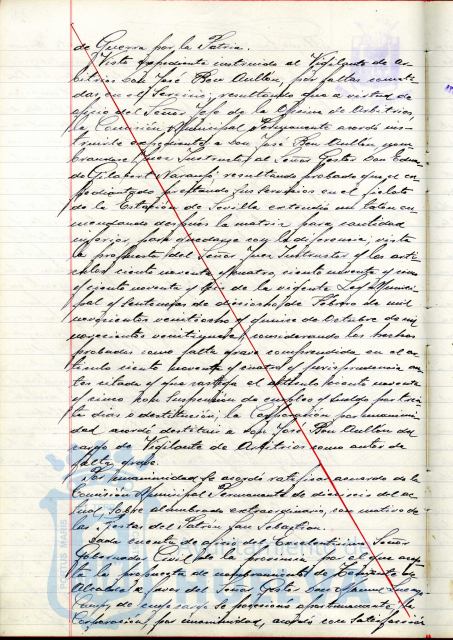 de Guerra por la Patria.
Visto expediente instruido al Vigilante de Ar-
bitrios Don José Ron Aullon, por faltas cometi-
das en el Servicio; resultando que a virtud de
oficio del Señor Jefe de la Oficina de Arbitrios,
la Comisión Municipal Permanente acordó ins-
truirle expediente a Don José Ron Aullon, nom-
brandose Juez Instructor al Señor Gestor Don
de Naranjo; resultando probado que el ex-
pedientado prestando sus servicios en el fielato
de la Estación de Sevilla extendió un talon en-
mendando después la matriz para cantidad
inferior, para quedarse con la diferencia; vista
la propuesta del Señor Juez Instructor y los arti-
culos ciento noventa y cuatro, ciento noventa y cinco
y ciento noventa y seis de la vigente Ley Munici-
pal y Sentencias de dieciocho de Febrero de mil
novecientos veintiocho y quince de Octubre de mil
novecientos veintinueve; considerando los hechos
probados como falta grave comprendida en el ar-
tículo ciento noventa y cuatro y jurisprudencia an-
tes citada y que castiga el artículo ciento noventa
y cinco con suspensión de empleo y sueldo por trein-
ta dias o destitución; la Corporación por unanimi-
dad acordó destituir a Don José Ron Aullon del
cargo de Vigilante de Arbitrios como autor de
falta grave.
Por unanimidad se acordó ratificar acuerdo de la
Comisión Municipal Permanente de dieciseis del ac-
tual, sobre alumbrado extraordinario, con motivo de
las Fiestas del Patrón San Sebastian.
Dada cuenta de oficio del Excelentísimo Señor
Gobernador Civil de la provincia por el que acep-
ta la propuesta de nombramiento de Teniente de
Alcalde a favor del Señor Gestor Don Manuel
de cuyo cargo se posesionó oportunamente, la
Corporación por unanimidad, acordó con satisfacción
PORTUS MARIS
Ayuntamiento de